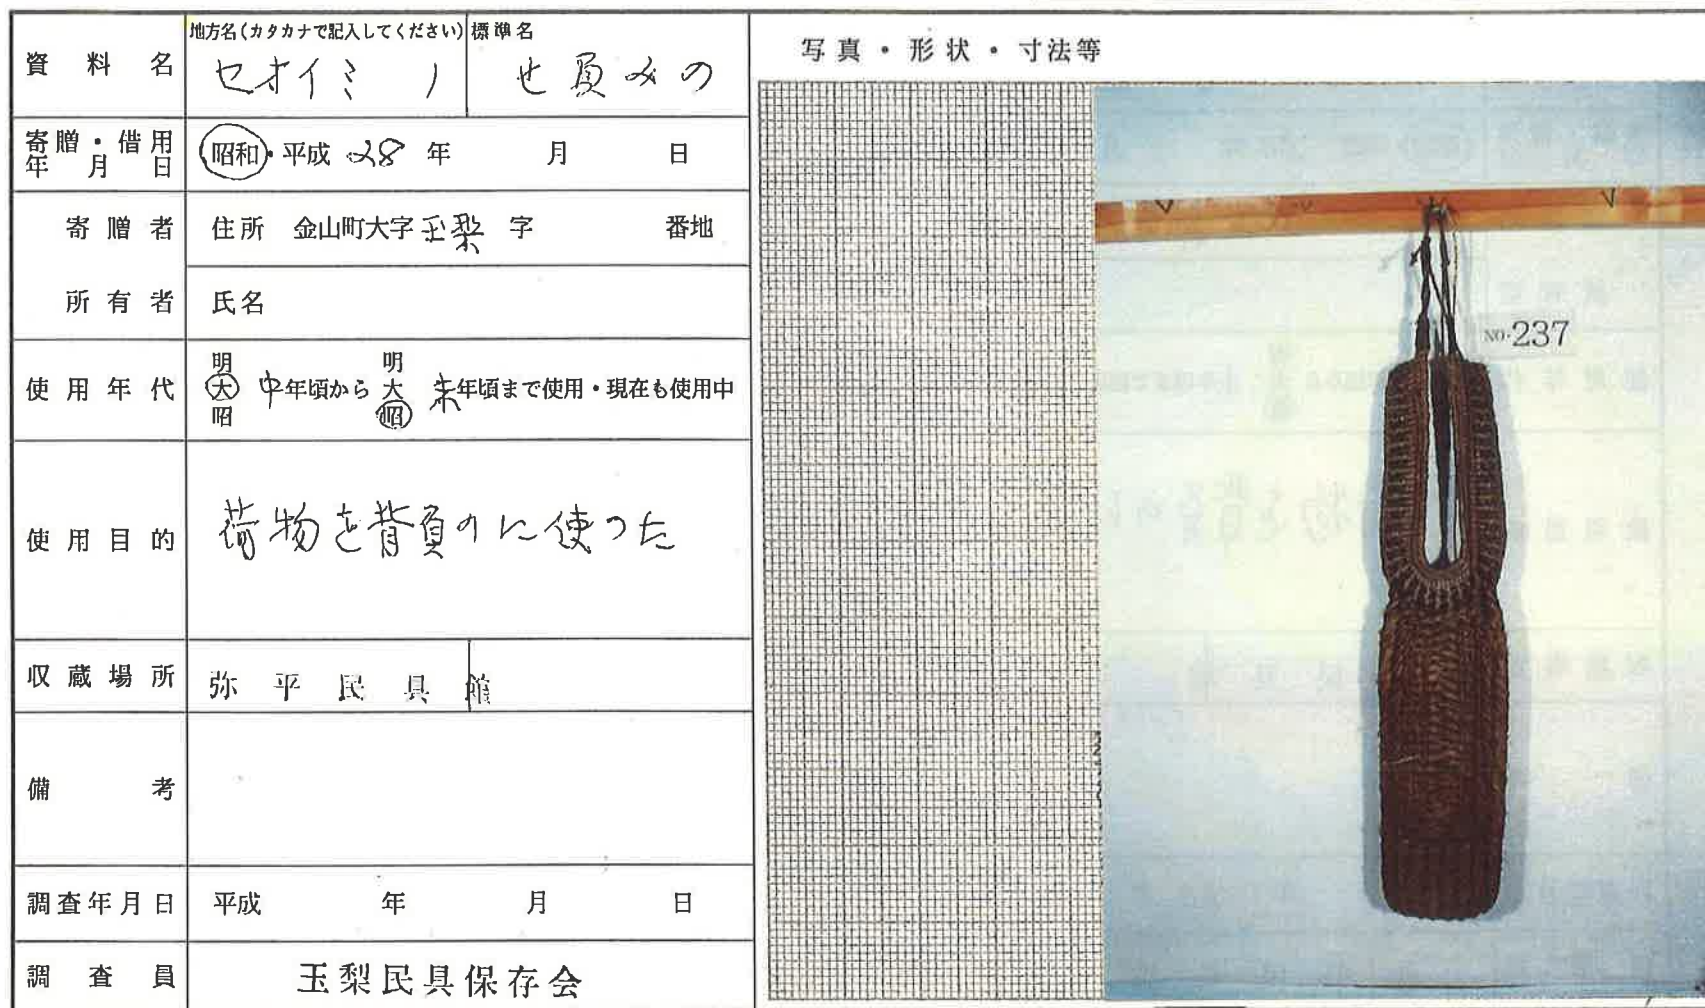 資料名
地方名(カタカナで記入してください)
セオイミノ
標準名
せ負みの
寄贈・借用年月日
昭和・平成 28 年 月 日
寄贈者
住所 金山町大字 玉梨 字 番地
所有者
氏名
使用年代
明大昭 中年頃から 明大昭 末年頃まで使用・現在も使用中
使用目的
荷物を背負のに使つた
収蔵場所
弥平民具館
備考
調査年月日
平成 年 月 日
調査員
玉梨民具保存会
写真・形状・寸法等
NO.237